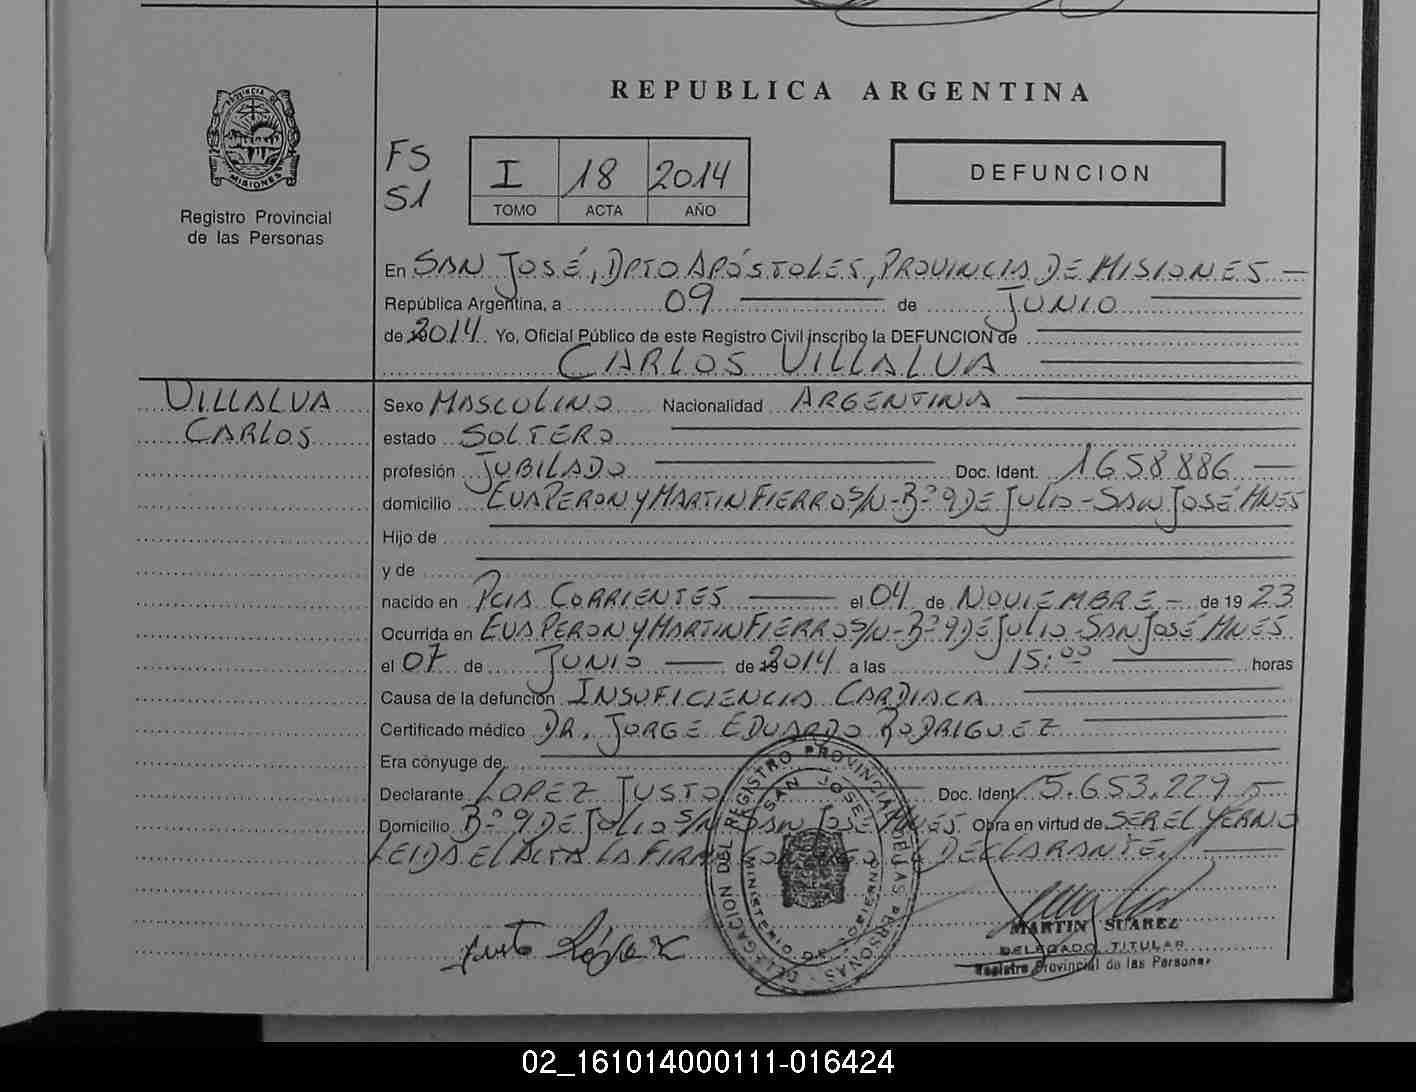 REPUBLICA ARGENTINA
PROVINCIA DE MISIONES
Registro Provincial
de las Personas
FS
51
I 18 2014
TOMO ACTA AÑO
DEFUNCION
En SAN JOSÉ, DPTO APÓSTOLES, PROVINCIA DE MISIONES
República Argentina, a 09 de JUNIO
de 2014 Yo, Oficial Público de este Registro Civil inscribo la DEFUNCION de
CARLOS VILLALVA
VILLALVA
CARLOS
Sexo MASCULINO Nacionalidad ARGENTINA
estado SOLTERO
profesión JUBILADO Doc. Ident. 1658886
domicilio EVA PERON Y MARTIN FIERRO S/N - Bº 9 DE JULIO - SAN JOSÉ MNES
Hijo de
y de
nacido en PCIA CORRIENTES el 04 de NOVIEMBRE de 1923
Ocurrida en EVA PERON Y MARTIN FIERRO S/N - Bº 9 DE JULIO - SAN JOSÉ MNES
el 07 de JUNIO de 2014 a las 15:00 horas
Causa de la defunción INSUFICIENCIA CARDIACA
Certificado médico DR. JORGE EDUARDO RODRIGUEZ
Era cónyuge de
Declarante LOPEZ JUSTO Doc. Ident. 5.653.229
Domicilio Bº 9 DE JULIO S/N SAN JOSÉ MNES Obra en virtud de SER EL YERNO
LEIDA EL ACTA LA FIRMA CONMIGO EL DECLARANTE.
Justo López
DELEGACION DEL REGISTRO PROVINCIAL DE LAS PERSONAS
SAN JOSE
MINISTERIO DE GOBIERNO
MARTIN SUAREZ
DELEGADO TITULAR
Registro Provincial de las Personas
02_161014000111-016424